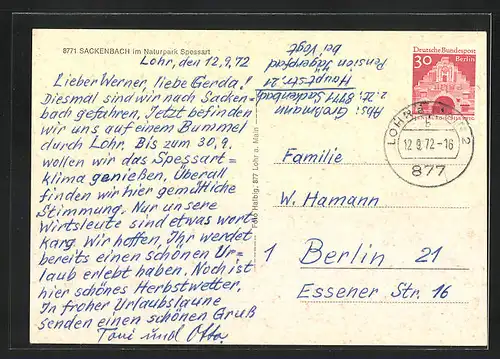 8771 SACKENBACH im Naturpark Spessart
Lohr, den 12.9.72
Lieber Werner, liebe Gerda!
Diesmal sind wir nach Sacken-
bach gefahren. Jetzt befinden
wir uns auf einem Bummel
durch Lohr. Bis zum 30.9.
wollen wir das Spessart=
klima genießen. Überall
finden wir hier gemütliche
Stimmung. Nur unsere
Wirtsleute sind etwas wort
karg. Wir hoffen, Ihr werdet
bereits einen schönen Ur=
laub erlebt haben. Noch ist
hier schönes Herbstwetter.
In froher Urlaubslaune
senden einen schönen Gruß
Toni und Otto.
Foto Halbig, 877 Lohr a. Main
Abs: Großmann
z. Zt. 8771 Sackenbach
Hauptstr. 21
Pension Jägerpfad
bei Vogt
Deutsche Bundespost
30
Berlin
LOHR
2
12.9.72-16
877
Familie
W. Hamann
1 Berlin 21
Essener Str. 16